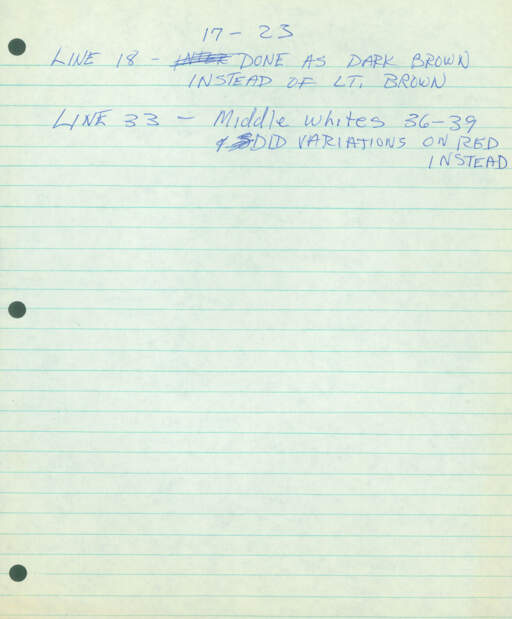 17 - 23
LINE 18 - DONE AS DARK BROWN
INSTEAD OF LT. BROWN
LINE 33 - Middle whites 36-39
& DID VARIATIONS ON RED
INSTEAD